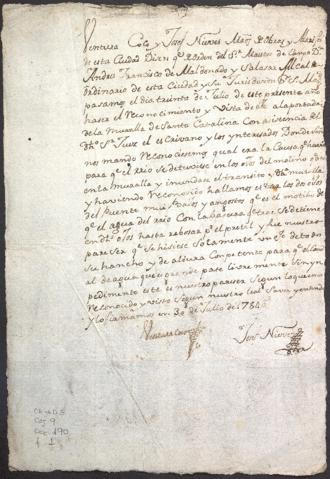 Ventura Coto y Josef Nieves Mros de obras y Alarifes
de esta Ciudad Dizen qe de orden del Sr Maestre de Campo Dn
Andres Francisco de Maldonado y Salazar Alcalde
ordinario de esta Ciudad y su Jurisdicion Por S. M.
pasamos el dia treinta de Julio de este presente año
hazer el Reconocimiento y Vista de ojos a la portada
de la Muralla de Santa Catalina Con asistencia del
dho Sr Juez el escrivano y los ynteresados Donde dicho
nos mando Reconosiesemos qual era la Causa qe havia
para qe el rrio se detuviese en los ojos del molino o de
en la Muralla y inundase el transito y dha muralla
y haviendo Reconocido hallamos estar los dos ojos
del Puente muy Baxos y angostos qe es el motivo de
qe el agua del rrio Con la basura qe trae se detiene
en dhos ojos hasta rebosar pr el pretil y fue nuestro
pareser qe se hisiese Solamente un ojo de todo
su hancho y de altura Competente para qe llena
al de agua qe qiera qe pase libre mente sin yn
pedimento este es nuestro pareser Segun lo que emos
Reconocido y visto Segun nuestro leal Saver y entender
y lo firmamos en 30 de Julio de 1784
Ventura Coto
Josef Nieves
Ca-ADS
Caj 9
Doc 190
f 1